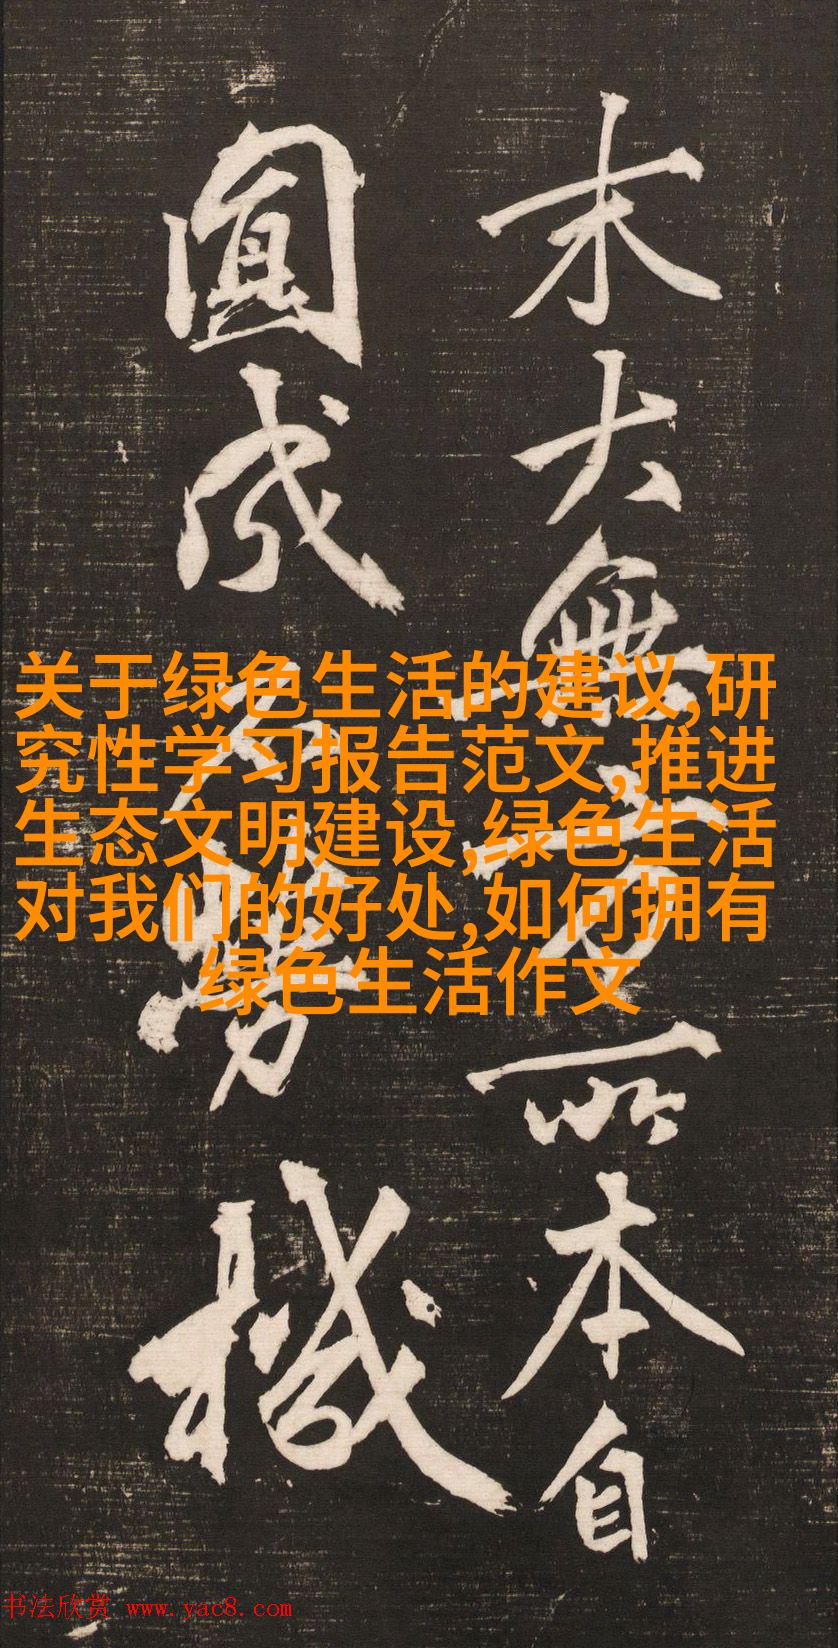 大無方所本自
圓成不勞機
关于绿色生活的建议,研
究性学习报告范文,推进
生态文明建设,绿色生活
对我们的好处,如何拥有
绿色生活作文
书法欣赏 www.yac8.com